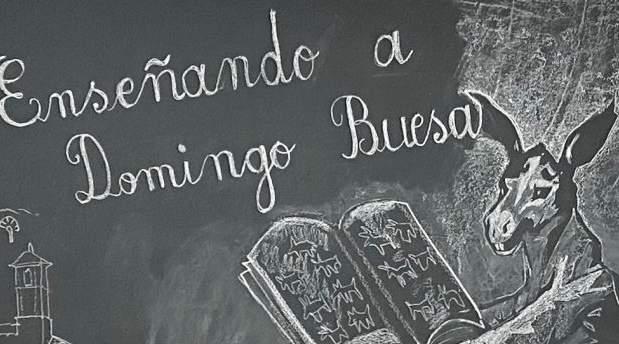 Enseñando a
Domingo Buesa